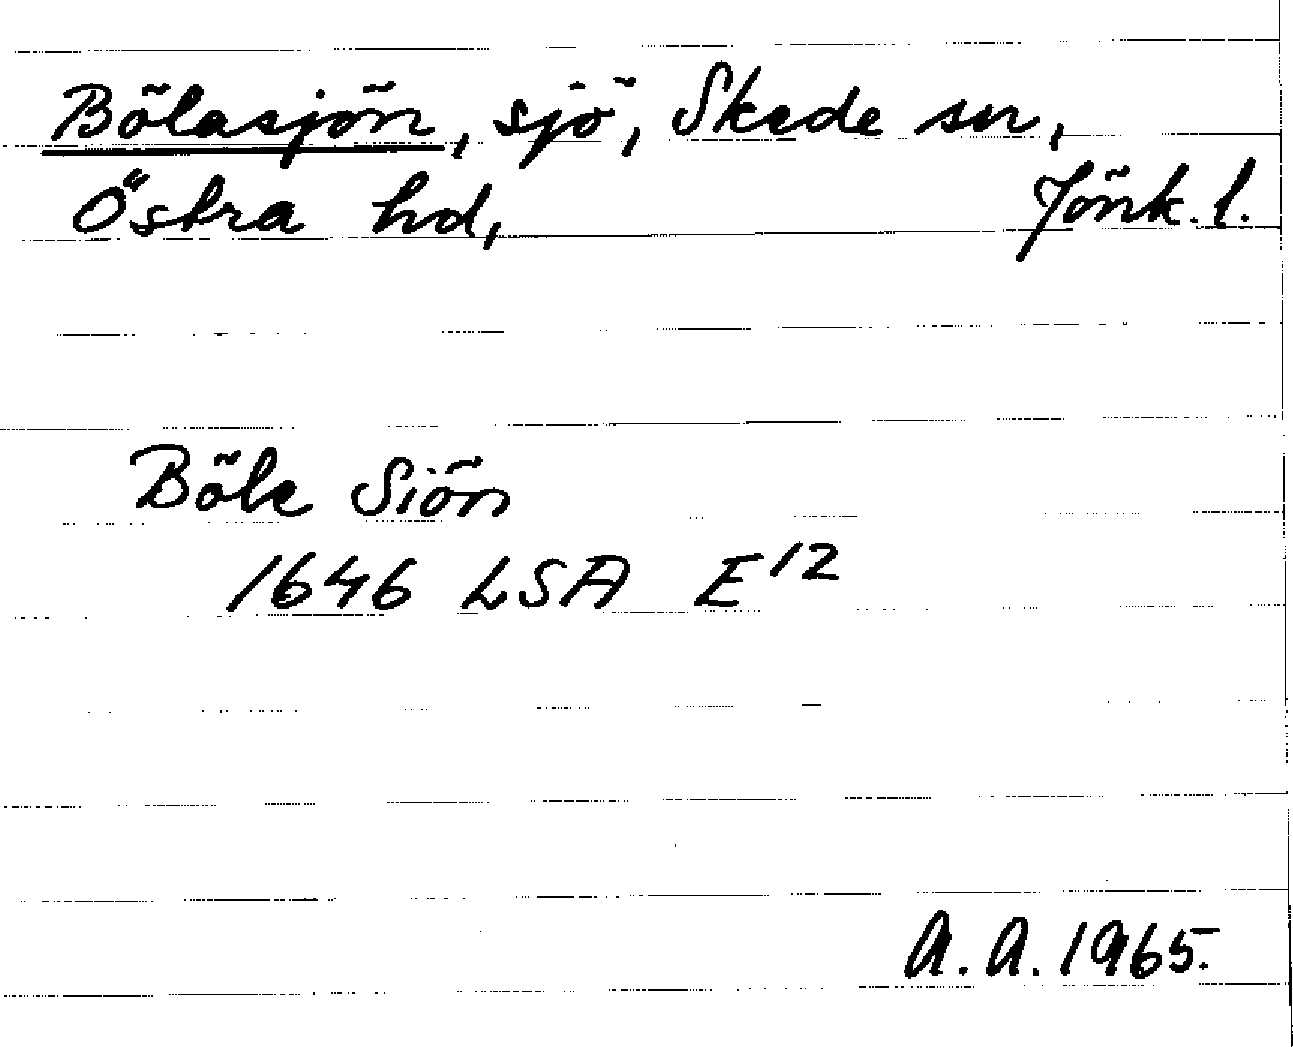 Bölasjön, sjö, Skede sn,
Östra hd, Jönk. l.
Böle Siön
1646 LSA E12
A. A. 1965.